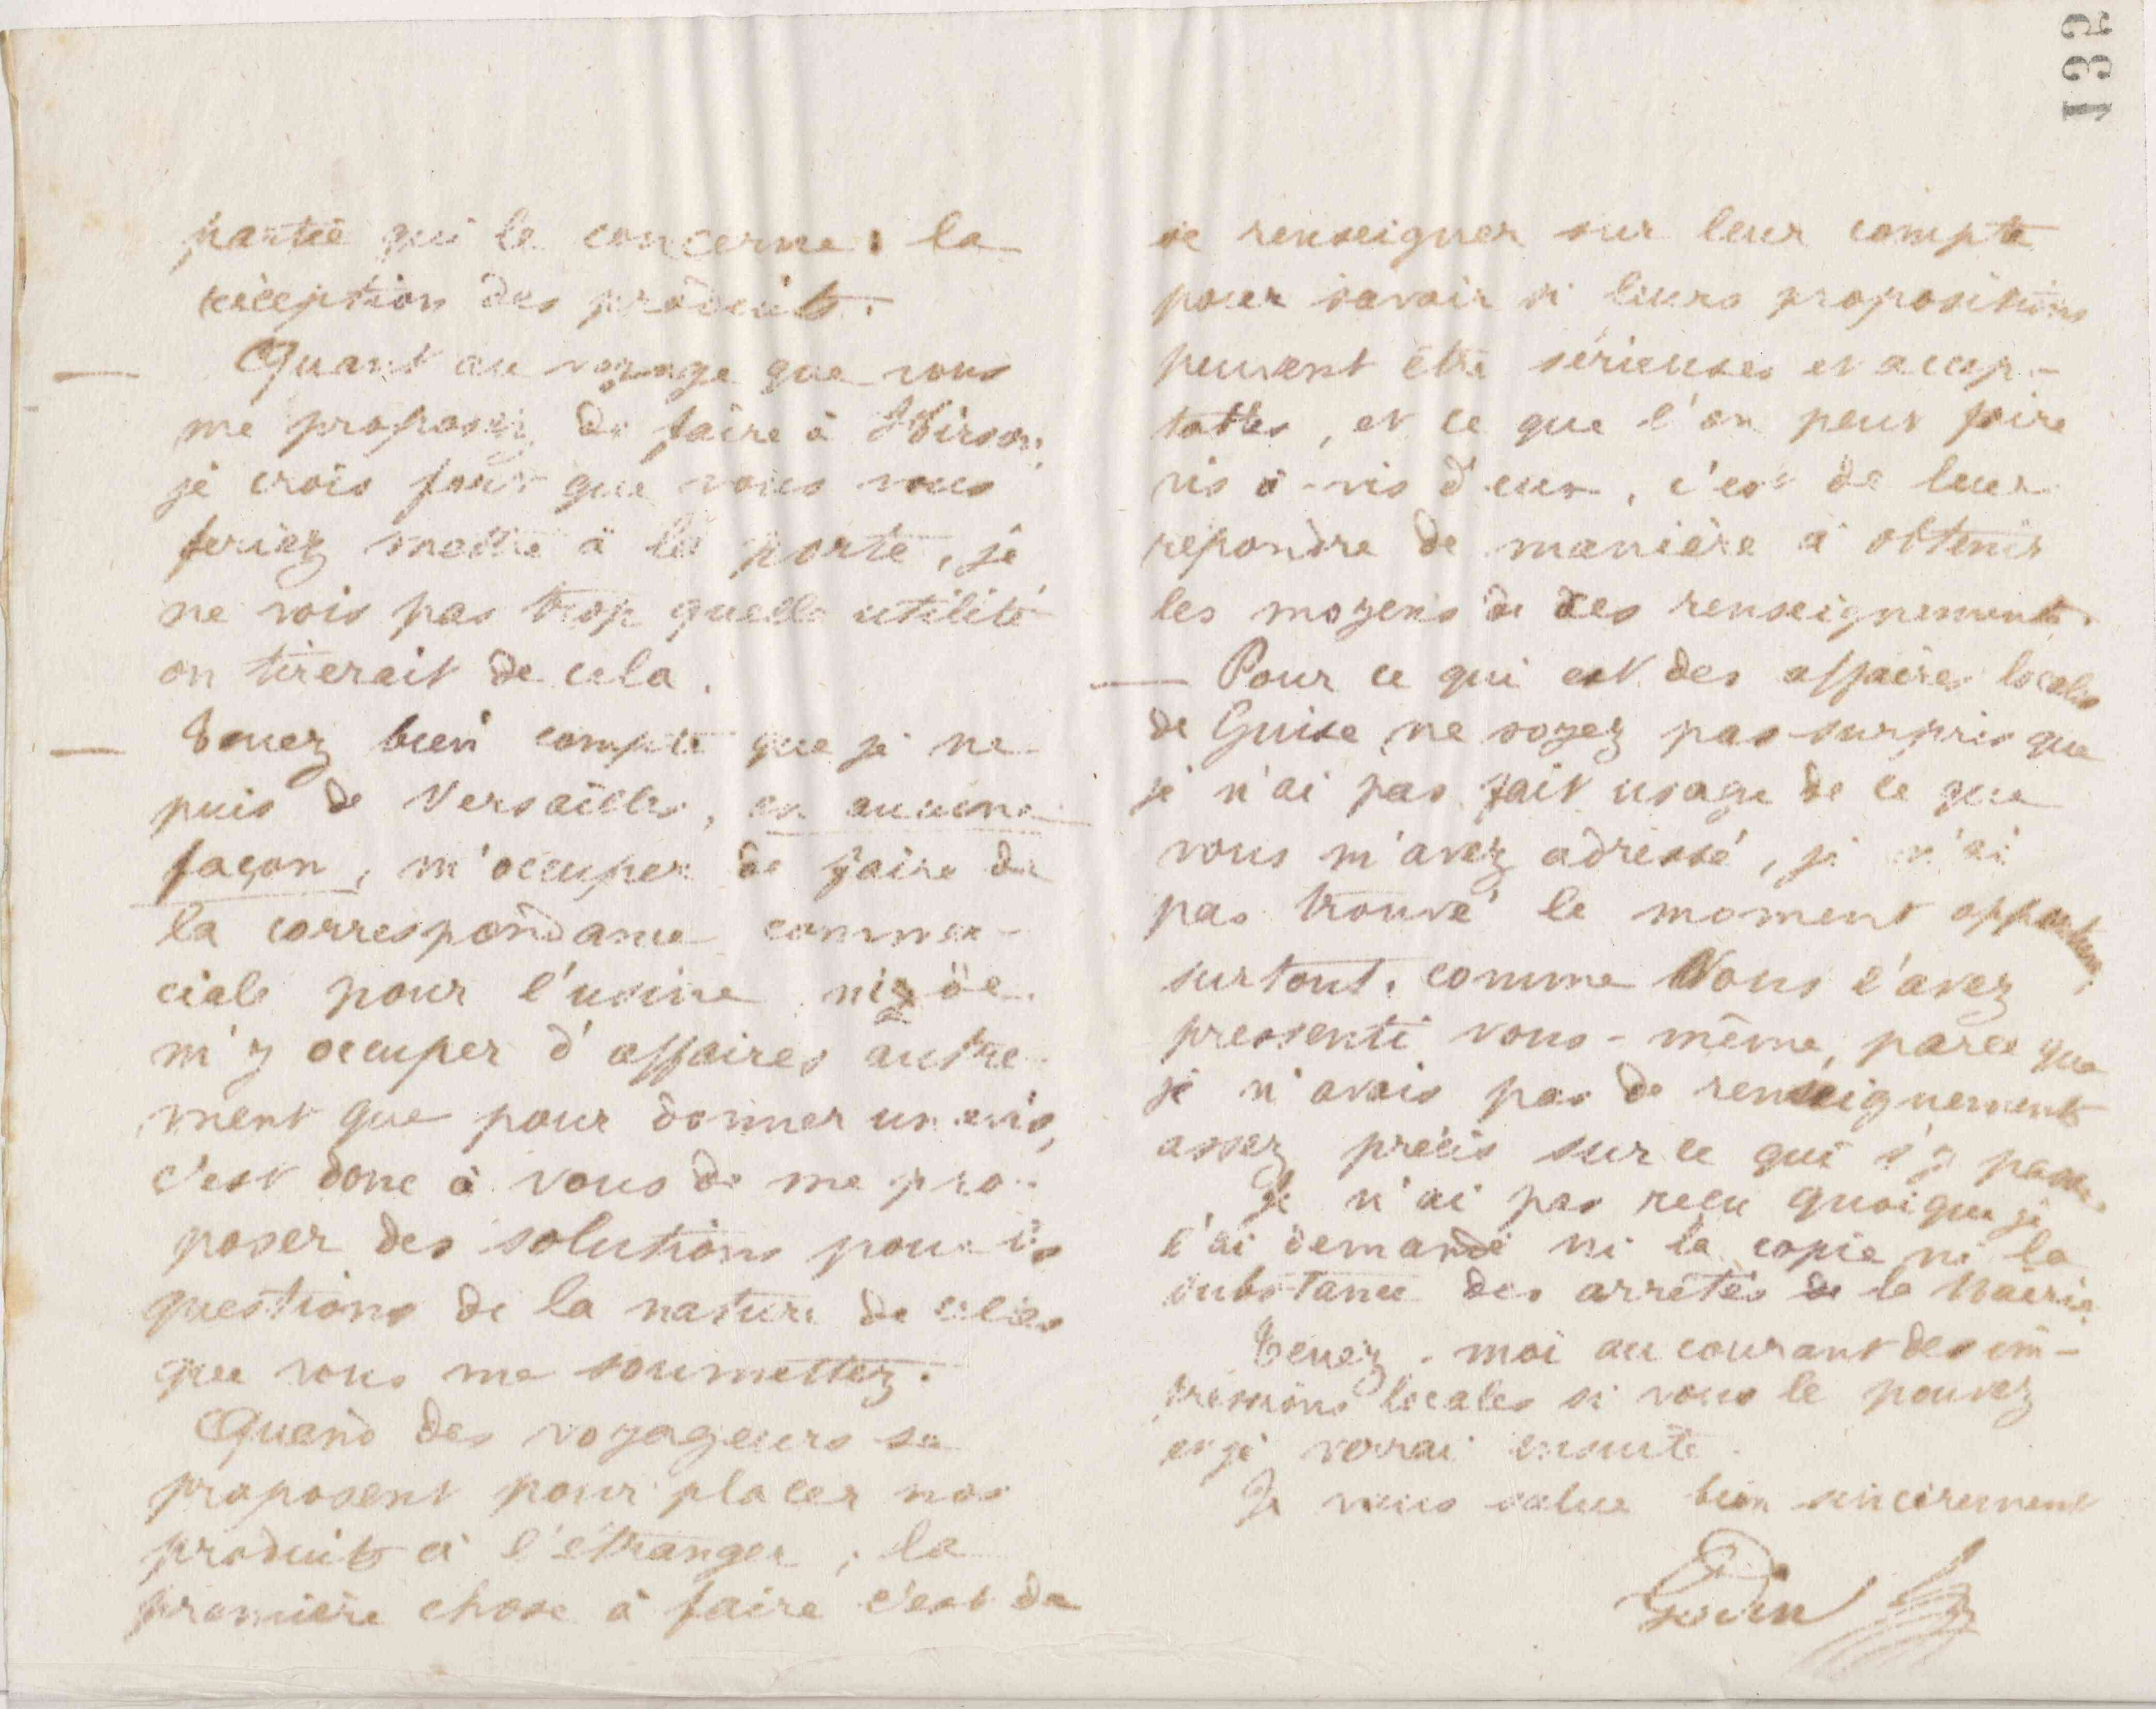 132
partie qui le concerne : la
réception des produits.
— Quant au voyage que vous
me proposez de faire à Hirson,
je crois fort que vous vous
feriez mettre à la porte, je
ne vois pas trop quelle utilité
on tirerait de cela.
— Tenez bien compte que je ne
puis de Versailles, en aucune
façon, m'occuper de faire de
la correspondance commer-
ciale pour l'usine ni de
m'y occuper d'affaires autre-
ment que pour donner un avis,
c'est donc à vous de me pro-
poser des solutions pour les
questions de la nature de celles
que vous me soumettez.
Quand des voyageurs se
proposent pour placer nos
produits à l'étranger, la
première chose à faire c'est de
se renseigner sur leur compte
pour savoir si leurs propositions
peuvent être sérieuses et accep-
tables, et ce que l'on peut faire
vis à-vis d'eux, c'est de leur
répondre de manière à obtenir
les moyens de des renseignements.
— Pour ce qui est des affaires locales
de Guise, ne soyez pas surpris que
je n'ai pas fait usage de ce que
vous m'avez adressé, je n'ai
pas trouvé le moment opportun,
surtout, comme Vous l'avez
pressenti vous-même, parce que
je n'avais pas de renseignements
assez précis sur ce qui s'y passe.
Je n'ai pas reçu quoique je
l'ai demandé ni la copie ni la
substance des arrêtés de la Mairie.
Tenez-moi au courant des im-
pressions locales si vous le pouvez
et je verrai ensuite.
Je vous salue bien sincèrement
Godin